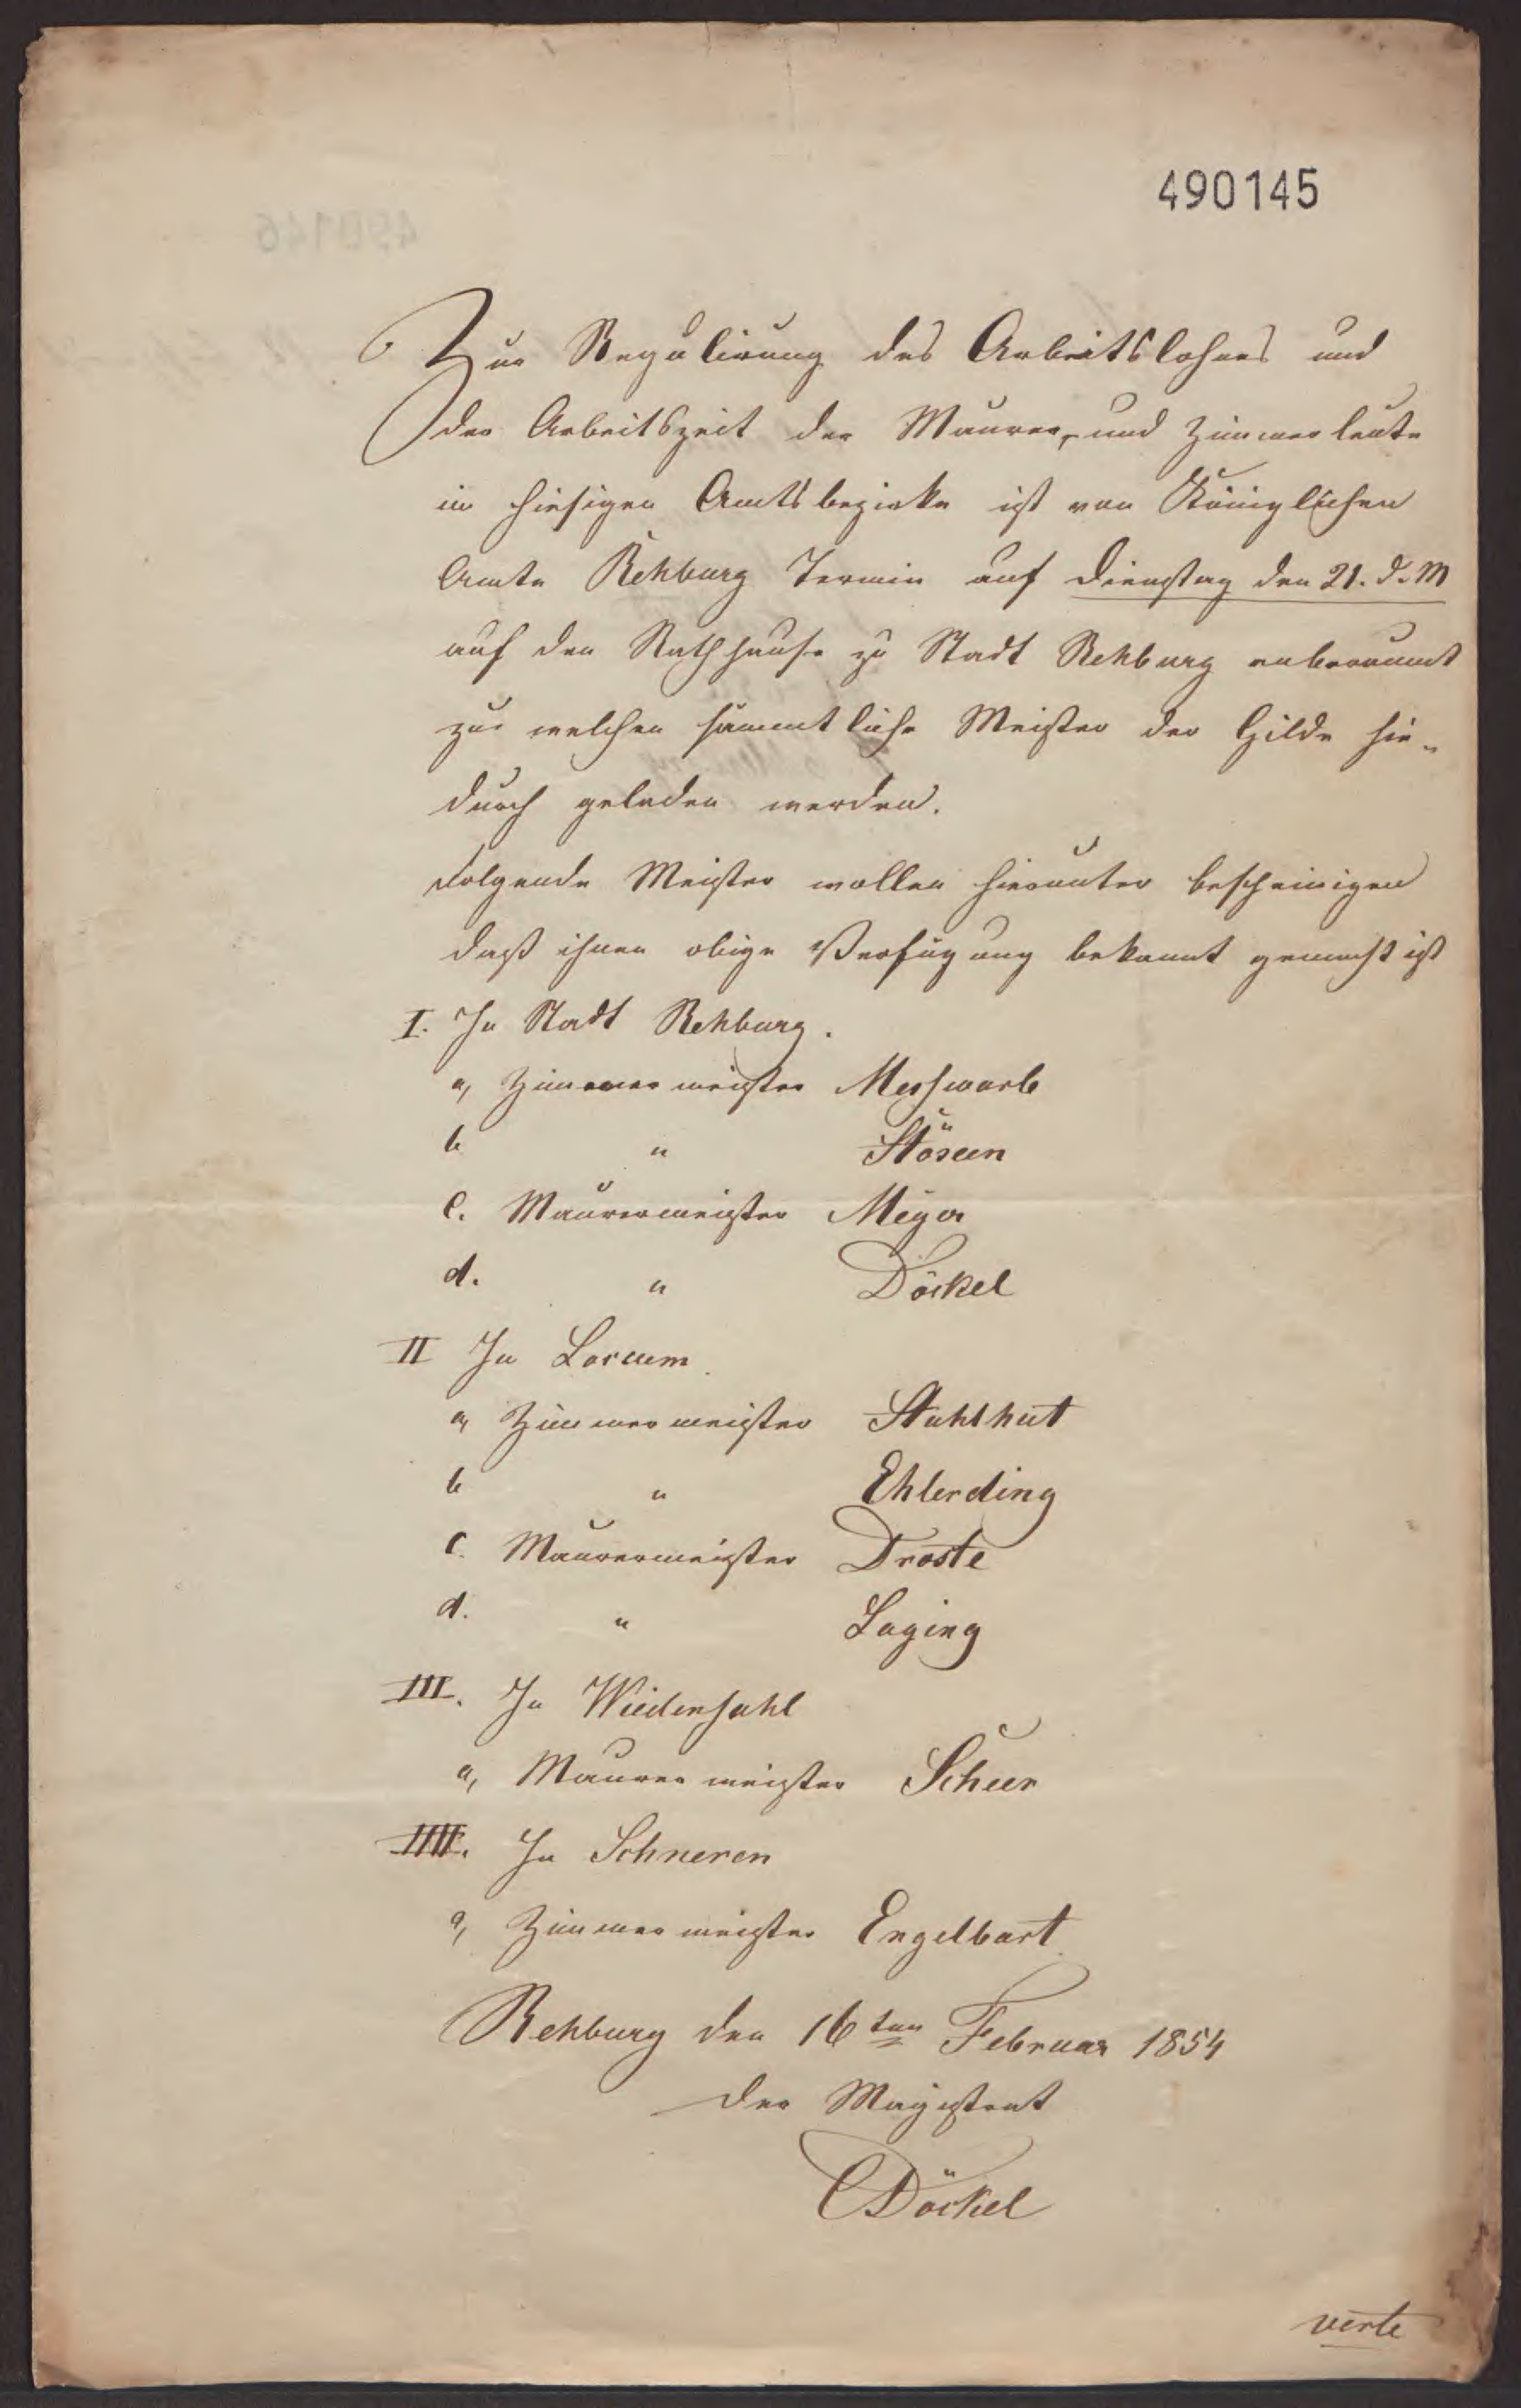 490145
Zur Regulirung des Arbeitslohnes und
der Arbeitszeit der Maurer- und Zimmerleute
im hiesigen Amtsbezirke ist von Königlichen
Amte Rehburg Termin auf Dienstag den 21. d. M
auf den Rathhause zu Stadt Rehburg anberaumt
zur welchen sämmtliche Meister der Gilde hie-
durch geladen werden.
Folgende Meister wollen hierunter bescheinigen
daß ihnen obige Verfügung bekannt gemacht ist
I. In Stadt Rehburg.
a, Zimmermeister Meßwarb
b " 
c. Maurermeister Meyer
d. " Döckel
II In Loccum.
a, Zimmermeister Stahlhut
b " Ehlerding
c. Maurermeister Droste
d. " Laging
III. In Wiedensahl
a, Maurermeister Scheer
IIII. In Schneren
a, Zimmermeister Engelbart
Rehburg den 16ten Februar 1854
Der Magistrat
Döckel
verte